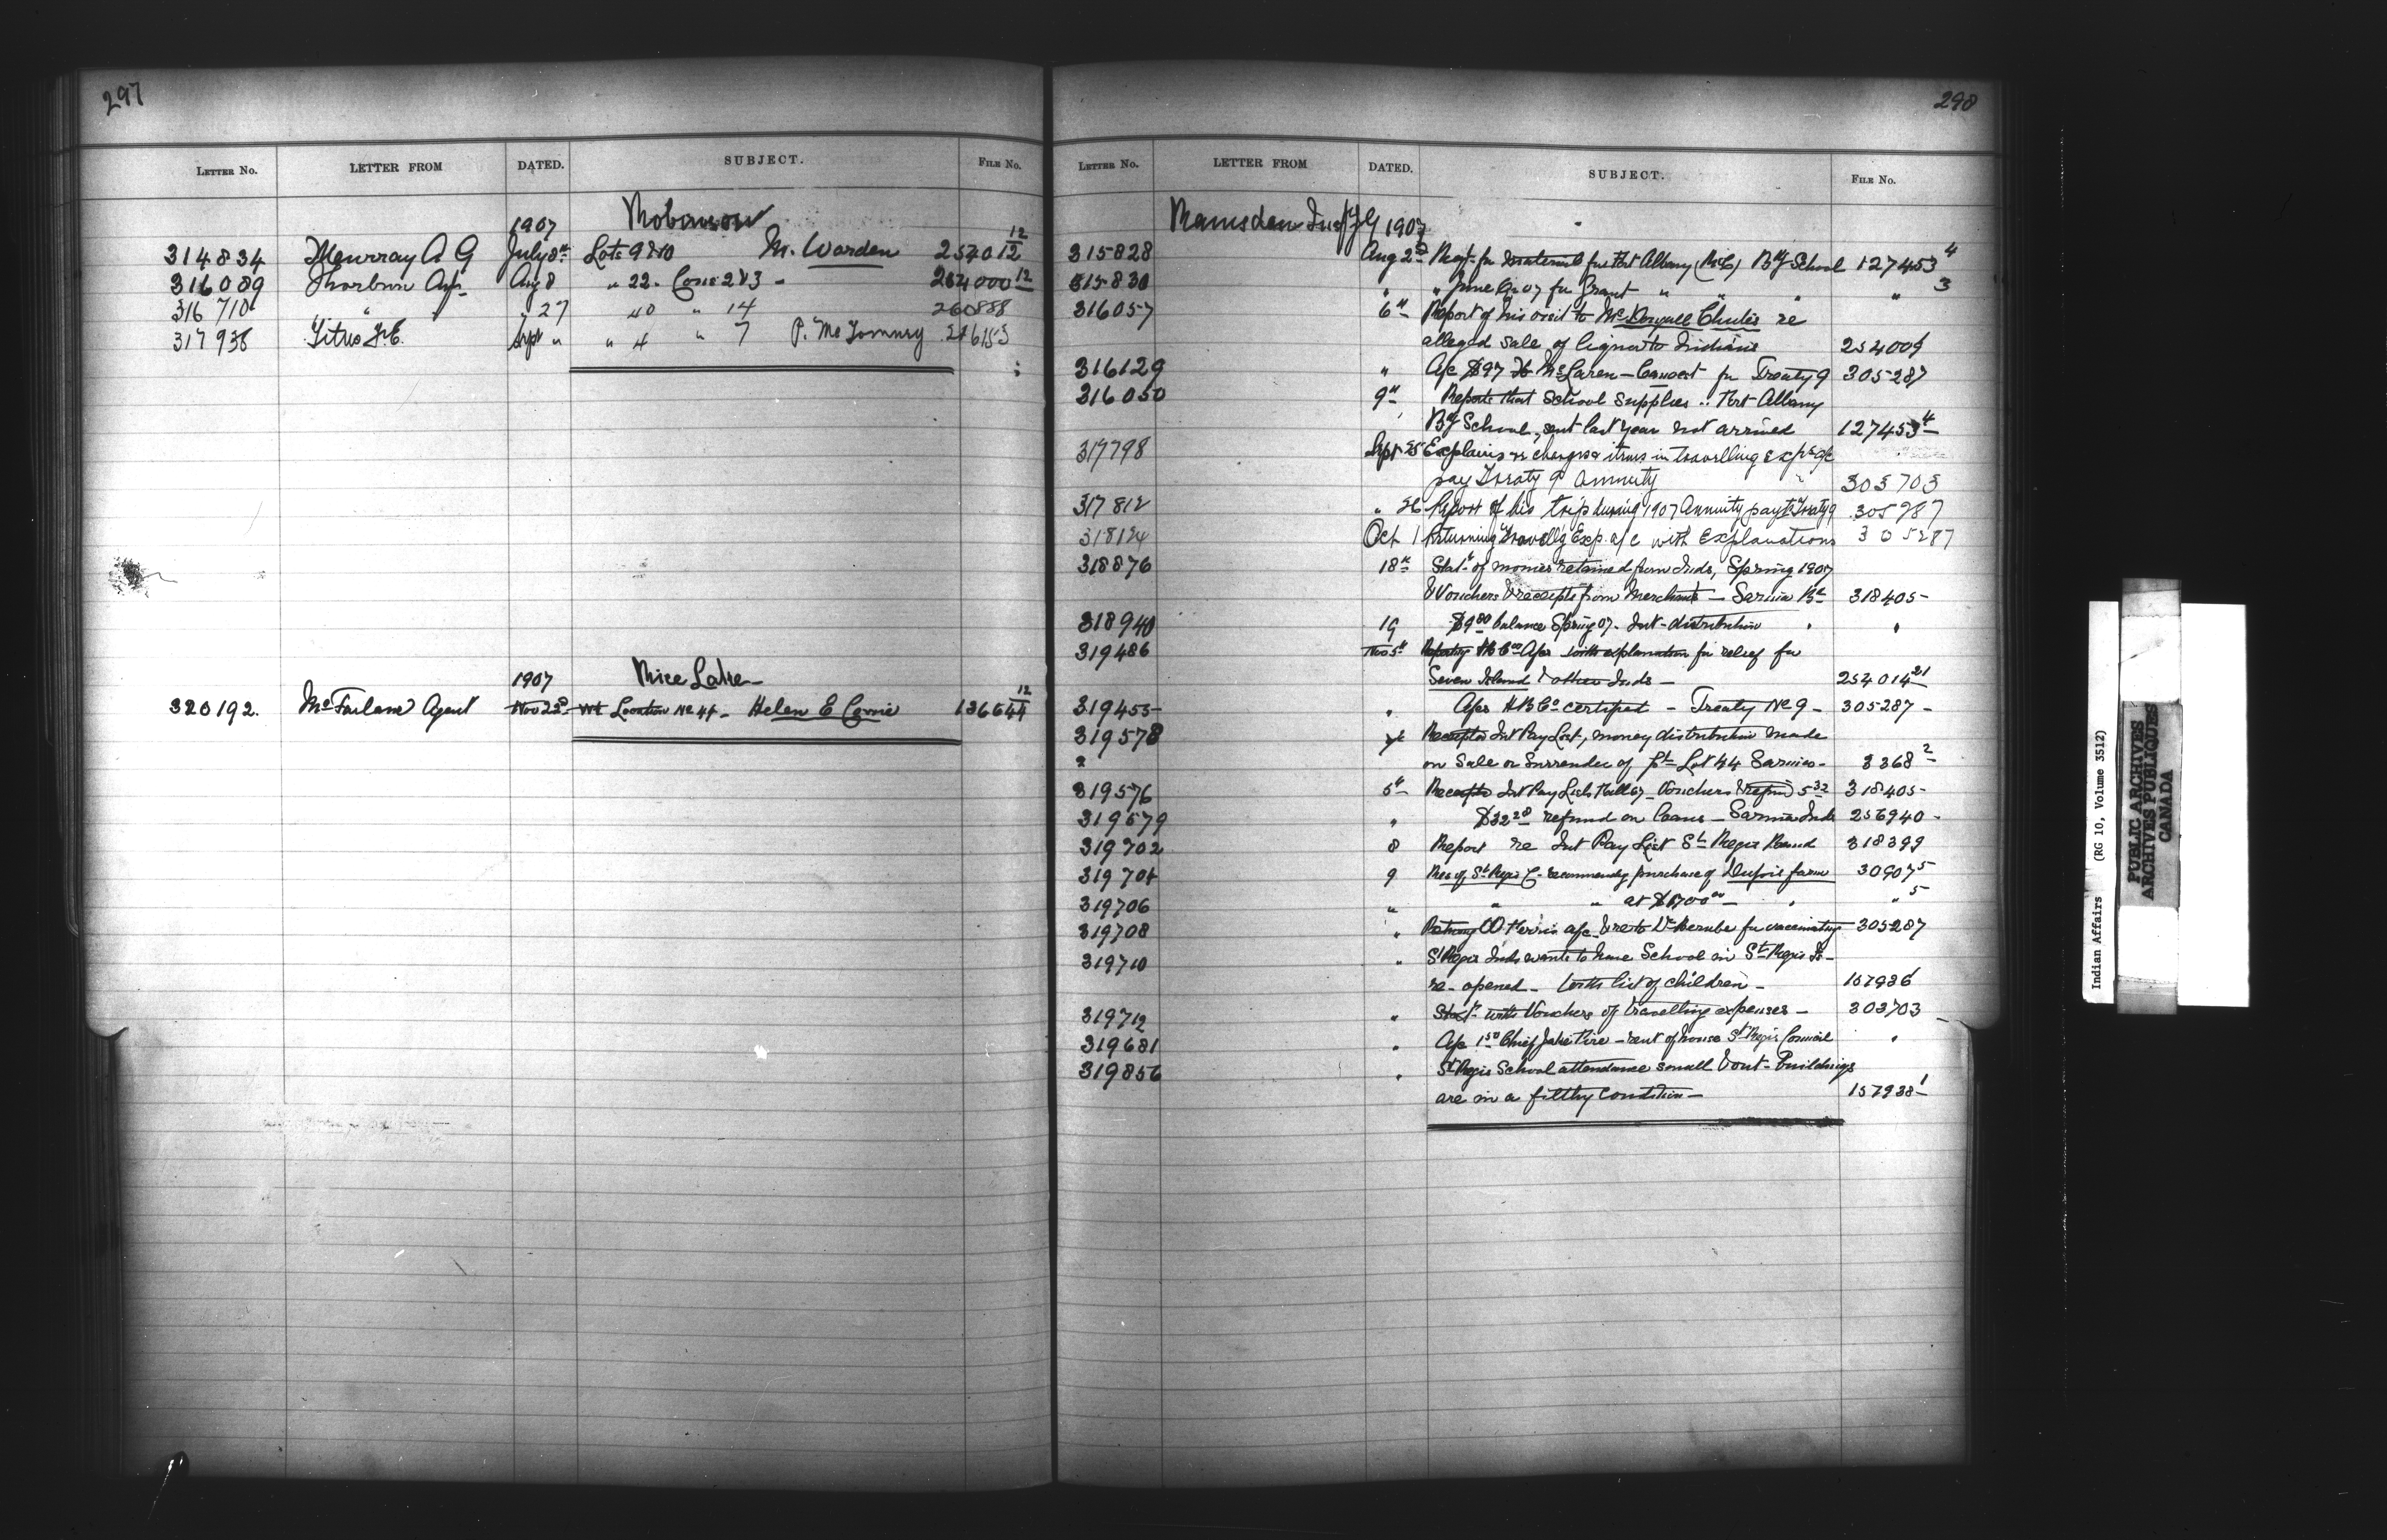 297
LETTER No. LETTER FROM DATED. SUBJECT. FILE No.
1907 Robinson
314834 Murray A G July 8th Lots 9 & 10 M. Warden 254012 12
316089 Thorburn Agt Aug 8 " 22. Cons 2 & 3 - 264000 12
316710 " " 27 40 " 14 260888
317938 Titus F.E. Sept " " 4 " 7 P. McTommey
1907 Rice Lake
320192. McFarlane Agent Nov 22d Location No 44 - Helen E Cowie 12
298
LETTER No. LETTER FROM DATED. SUBJECT. FILE No.
Ramsden J G 1907
315828 Aug 2d Reqt. for material for Fort Albany (R.C.) Bdg School 127453 4
315830 " " June Qr 07 for Grant " " " " 3
316057 6th Report of his visit to McDougall Chutes re
alleged sale of liquor to Indians 254009
316129 " A/c $97 McLaren - Canvas for Treaty 9 305287
316050 9th Reports that School Supplies Fort Albany
Bdg School, sent last year not arrived 127453 4
317798 Sept 25 Explains re charges & items in travelling exps a/c
pay Treaty 9 Annuity 303703
317812 " 26 Report of his trip during 1907 Annuity payts Treaty 9 305287
318124 Oct 1 Returning Travell'g Exp. a/c with Explanations 305287
318876 18th Stat. of monies retained from Inds, Spring 1907
& Vouchers & receipts from Merchants - Sarnia Bd 318405 -
318940 19 $9 80 balance Spring 07. Int. distribution " "
319486 Nov 5th H B Co A/cs with explanation for relief for
Seven Island & other Inds - 254014 21
319455 " A/cs H B Co certified - Treaty No 9 - 305287 -
319578 Receipted Int Pay List, money distribution made
on Sale or Surrender of pt. Lot 44 Sarnia - 3368 2
319576 5th Receipted Int Pay Lists Fall 07 - Vouchers & refund 5 32 318405 -
319579 " $32 28 refund on loans - Sarnia Inds 256940 -
319702 8 Report re Int Pay List St Regis Band 318399
319704 9 Res of St Regis C. recommendg purchase of Dupuis farm 30907 5
319706 " " " at $1700 00 - " " 5
319708 " a/c & re to Dr for vaccinating 305287
319710 " St Regis Inds wants to have School in St Regis Is -
re-opened - with list of children - 157936
319712 " Stat. with Vouchers of travelling expenses - 303703
319681 " A/c 1 50 Chief Jake Fire - rent of house St Regis Council "
319856 " St Regis School attendance small & out-buildings
are in a filthy condition - 157938 1
Indian Affairs (RG 10, Volume 3512)
PUBLIC ARCHIVES
ARCHIVES PUBLIQUES
CANADA